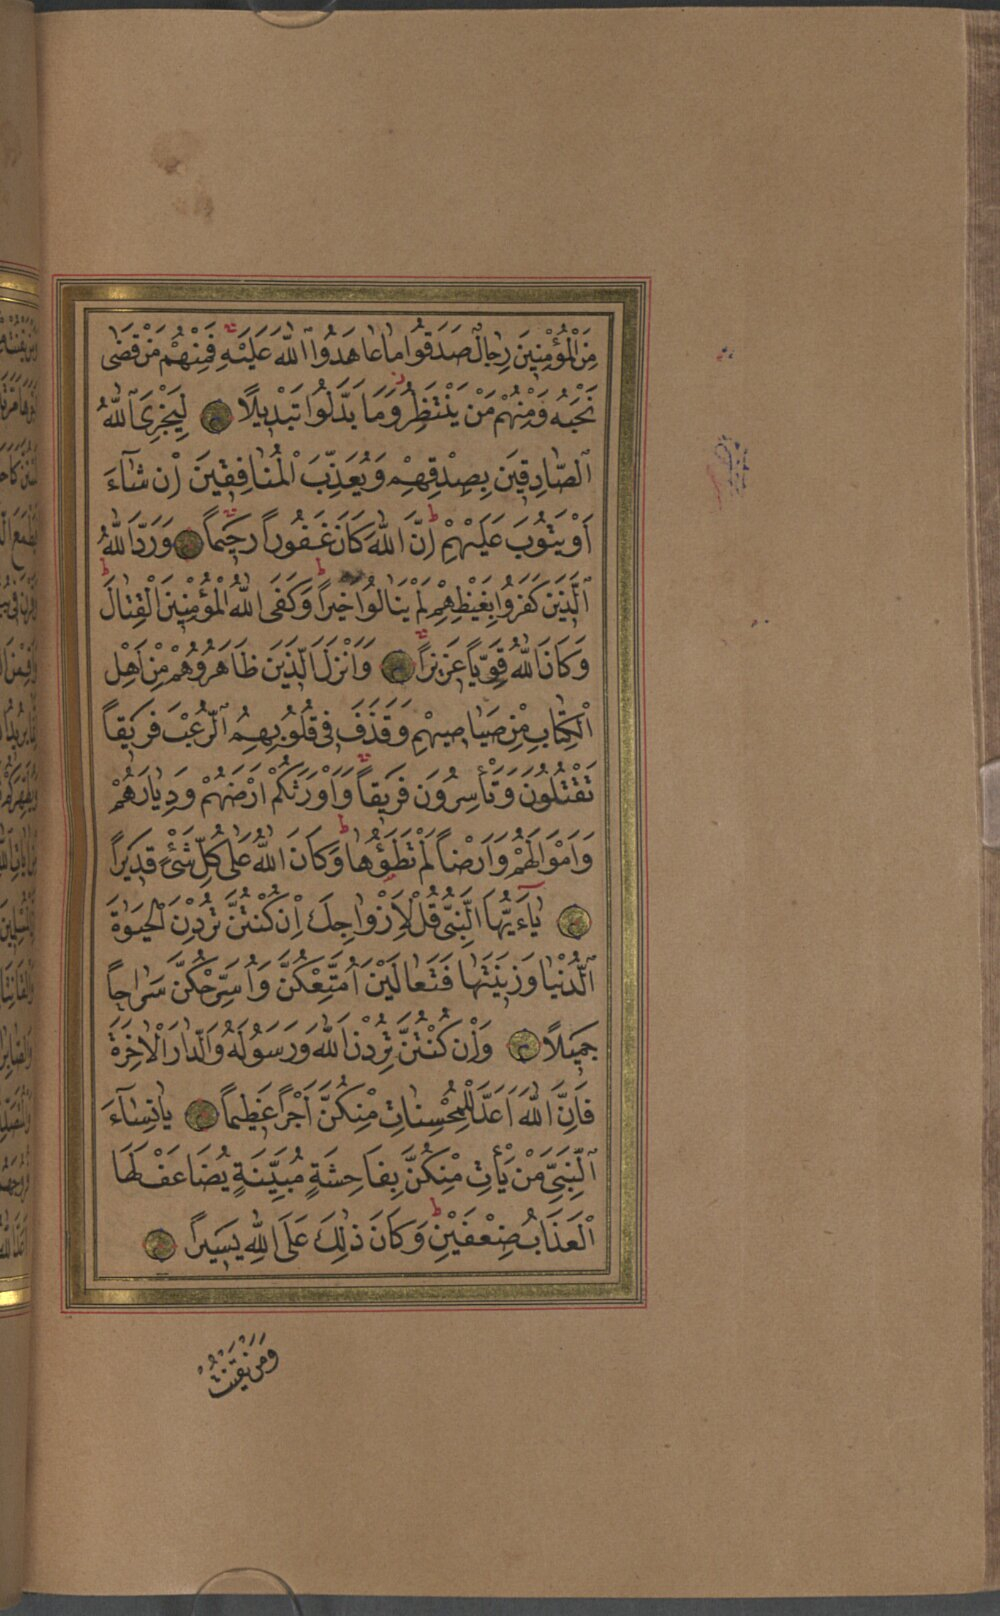 مِنَ الْمُؤْمِنِينَ رِجَالٌ صَدَقُوا مَا عَاهَدُوا اللّٰهَ عَلَيْهِ فَمِنْهُمْ مَنْ قَضٰى
نَحْبَهُ وَمِنْهُمْ مَنْ يَنْتَظِرُ وَمَا بَدَّلُوا تَبْدِيلًا لِيَجْزِيَ اللّٰهُ
الصَّادِقِينَ بِصِدْقِهِمْ وَيُعَذِّبَ الْمُنَافِقِينَ اِنْ شَاءَ
اَوْ يَتُوبَ عَلَيْهِمْ اِنَّ اللّٰهَ كَانَ غَفُورًا رَحِيمًا وَرَدَّ اللّٰهُ
الَّذِينَ كَفَرُوا بِغَيْظِهِمْ لَمْ يَنَالُوا خَيْرًا وَكَفَى اللّٰهُ الْمُؤْمِنِينَ الْقِتَالَ
وَكَانَ اللّٰهُ قَوِيًّا عَزِيزًا وَاَنْزَلَ الَّذِينَ ظَاهَرُوهُمْ مِنْ اَهْلِ
الْكِتَابِ مِنْ صَيَاصِيهِمْ وَقَذَفَ فِي قُلُوبِهِمُ الرُّعْبَ فَرِيقًا
تَقْتُلُونَ وَتَأْسِرُونَ فَرِيقًا وَاَوْرَثَكُمْ اَرْضَهُمْ وَدِيَارَهُمْ
وَاَمْوَالَهُمْ وَاَرْضًا لَمْ تَطَؤُهَا وَكَانَ اللّٰهُ عَلٰى كُلِّ شَيْءٍ قَدِيرًا
يَاۤءَيُّهَا النَّبِيُّ قُلْ لِاَزْوَاجِكَ اِنْ كُنْتُنَّ تُرِدْنَ الْحَيٰوةَ
الدُّنْيَا وَزِينَتَهَا فَتَعَالَيْنَ اُمَتِّعْكُنَّ وَاُسَرِّحْكُنَّ سَرَاحًا
جَمِيلًا وَاِنْ كُنْتُنَّ تُرِدْنَ اللّٰهَ وَرَسُولَهُ وَالدَّارَ الْاٰخِرَةَ
فَاِنَّ اللّٰهَ اَعَدَّ لِلْمُحْسِنَاتِ مِنْكُنَّ اَجْرًا عَظِيمًا يَانِسَاءَ
النَّبِيِّ مَنْ يَأْتِ مِنْكُنَّ بِفَاحِشَةٍ مُبَيِّنَةٍ يُضَاعَفْ لَهَا
الْعَذَابُ ضِعْفَيْنِ وَكَانَ ذٰلِكَ عَلَى اللّٰهِ يَسِيرًا
وَمَنْ يَقْنُتْ